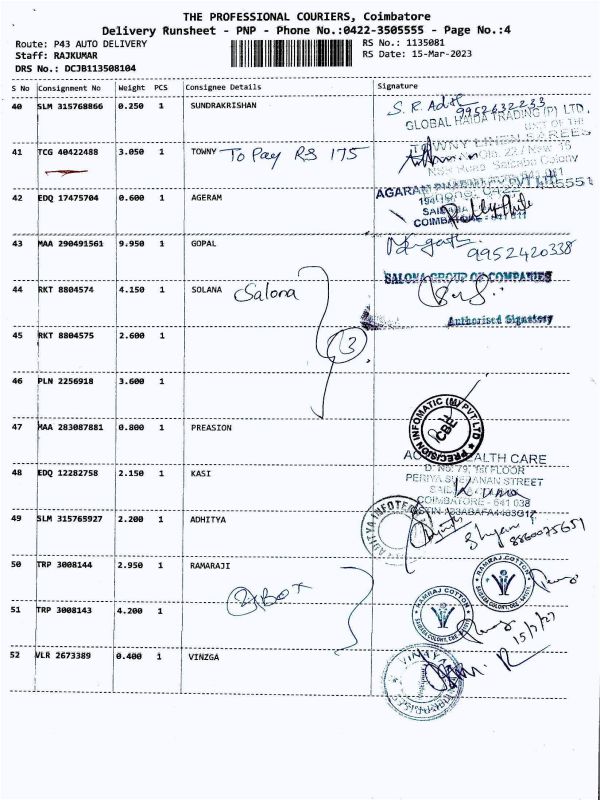 THE PROFESSIONAL COURIERS, Coimbatore
Delivery Runsheet - PNP - Phone No.:0422-3505555 - Page No.:4
Route: P43 AUTO DELIVERY RS No.: 1135081
Staff: RAJKUMAR RS Date: 15-Mar-2023
DRS No.: DCJB113508104
S No Consignment No Weight PCS Consignee Details Signature
40 SLM 315768866 0.250 1 SUNDRAKRISHAN
9952632233
GLOBAL HAIDA TRADING (P) LTD.
UNIT OF THE
TOWNY LINEN SAREES
41 TCG 40422488 3.050 1 TOWNY To Pay RS 175
NSR Road, Saibaba Colony
42 EDQ 17475704 0.600 1 AGERAM
AGARAM PVT LTD
COIMBATORE
43 MAA 290491561 9.950 1 GOPAL
9952420338
SALONA GROUP OF COMPANIES
44 RKT 8804574 4.150 1 SOLANA Salona
Authorised Signatory
45 RKT 8804575 2.600 1
3
46 PLN 2256918 3.600 1
47 MAA 283087881 0.800 1 PREASION
PRECISION INFOMATIC (M) PVT LTD
CBE
HEALTH CARE
D. No. 79, 1st FLOOR
STREET
48 EDQ 12282758 2.150 1 KASI
COIMBATORE - 641 038
49 SLM 315765927 2.200 1 ADHITYA
ADITYA INFOTECH
8860075651
50 TRP 3008144 2.950 1 RAMARAJI
RAMRAJ COTTON
SAIBABA COLONY, CBE
BOX
51 TRP 3008143 4.200 1
RAMRAJ COTTON
SAIBABA COLONY, CBE
52 VLR 2673389 0.400 1 VINZGA